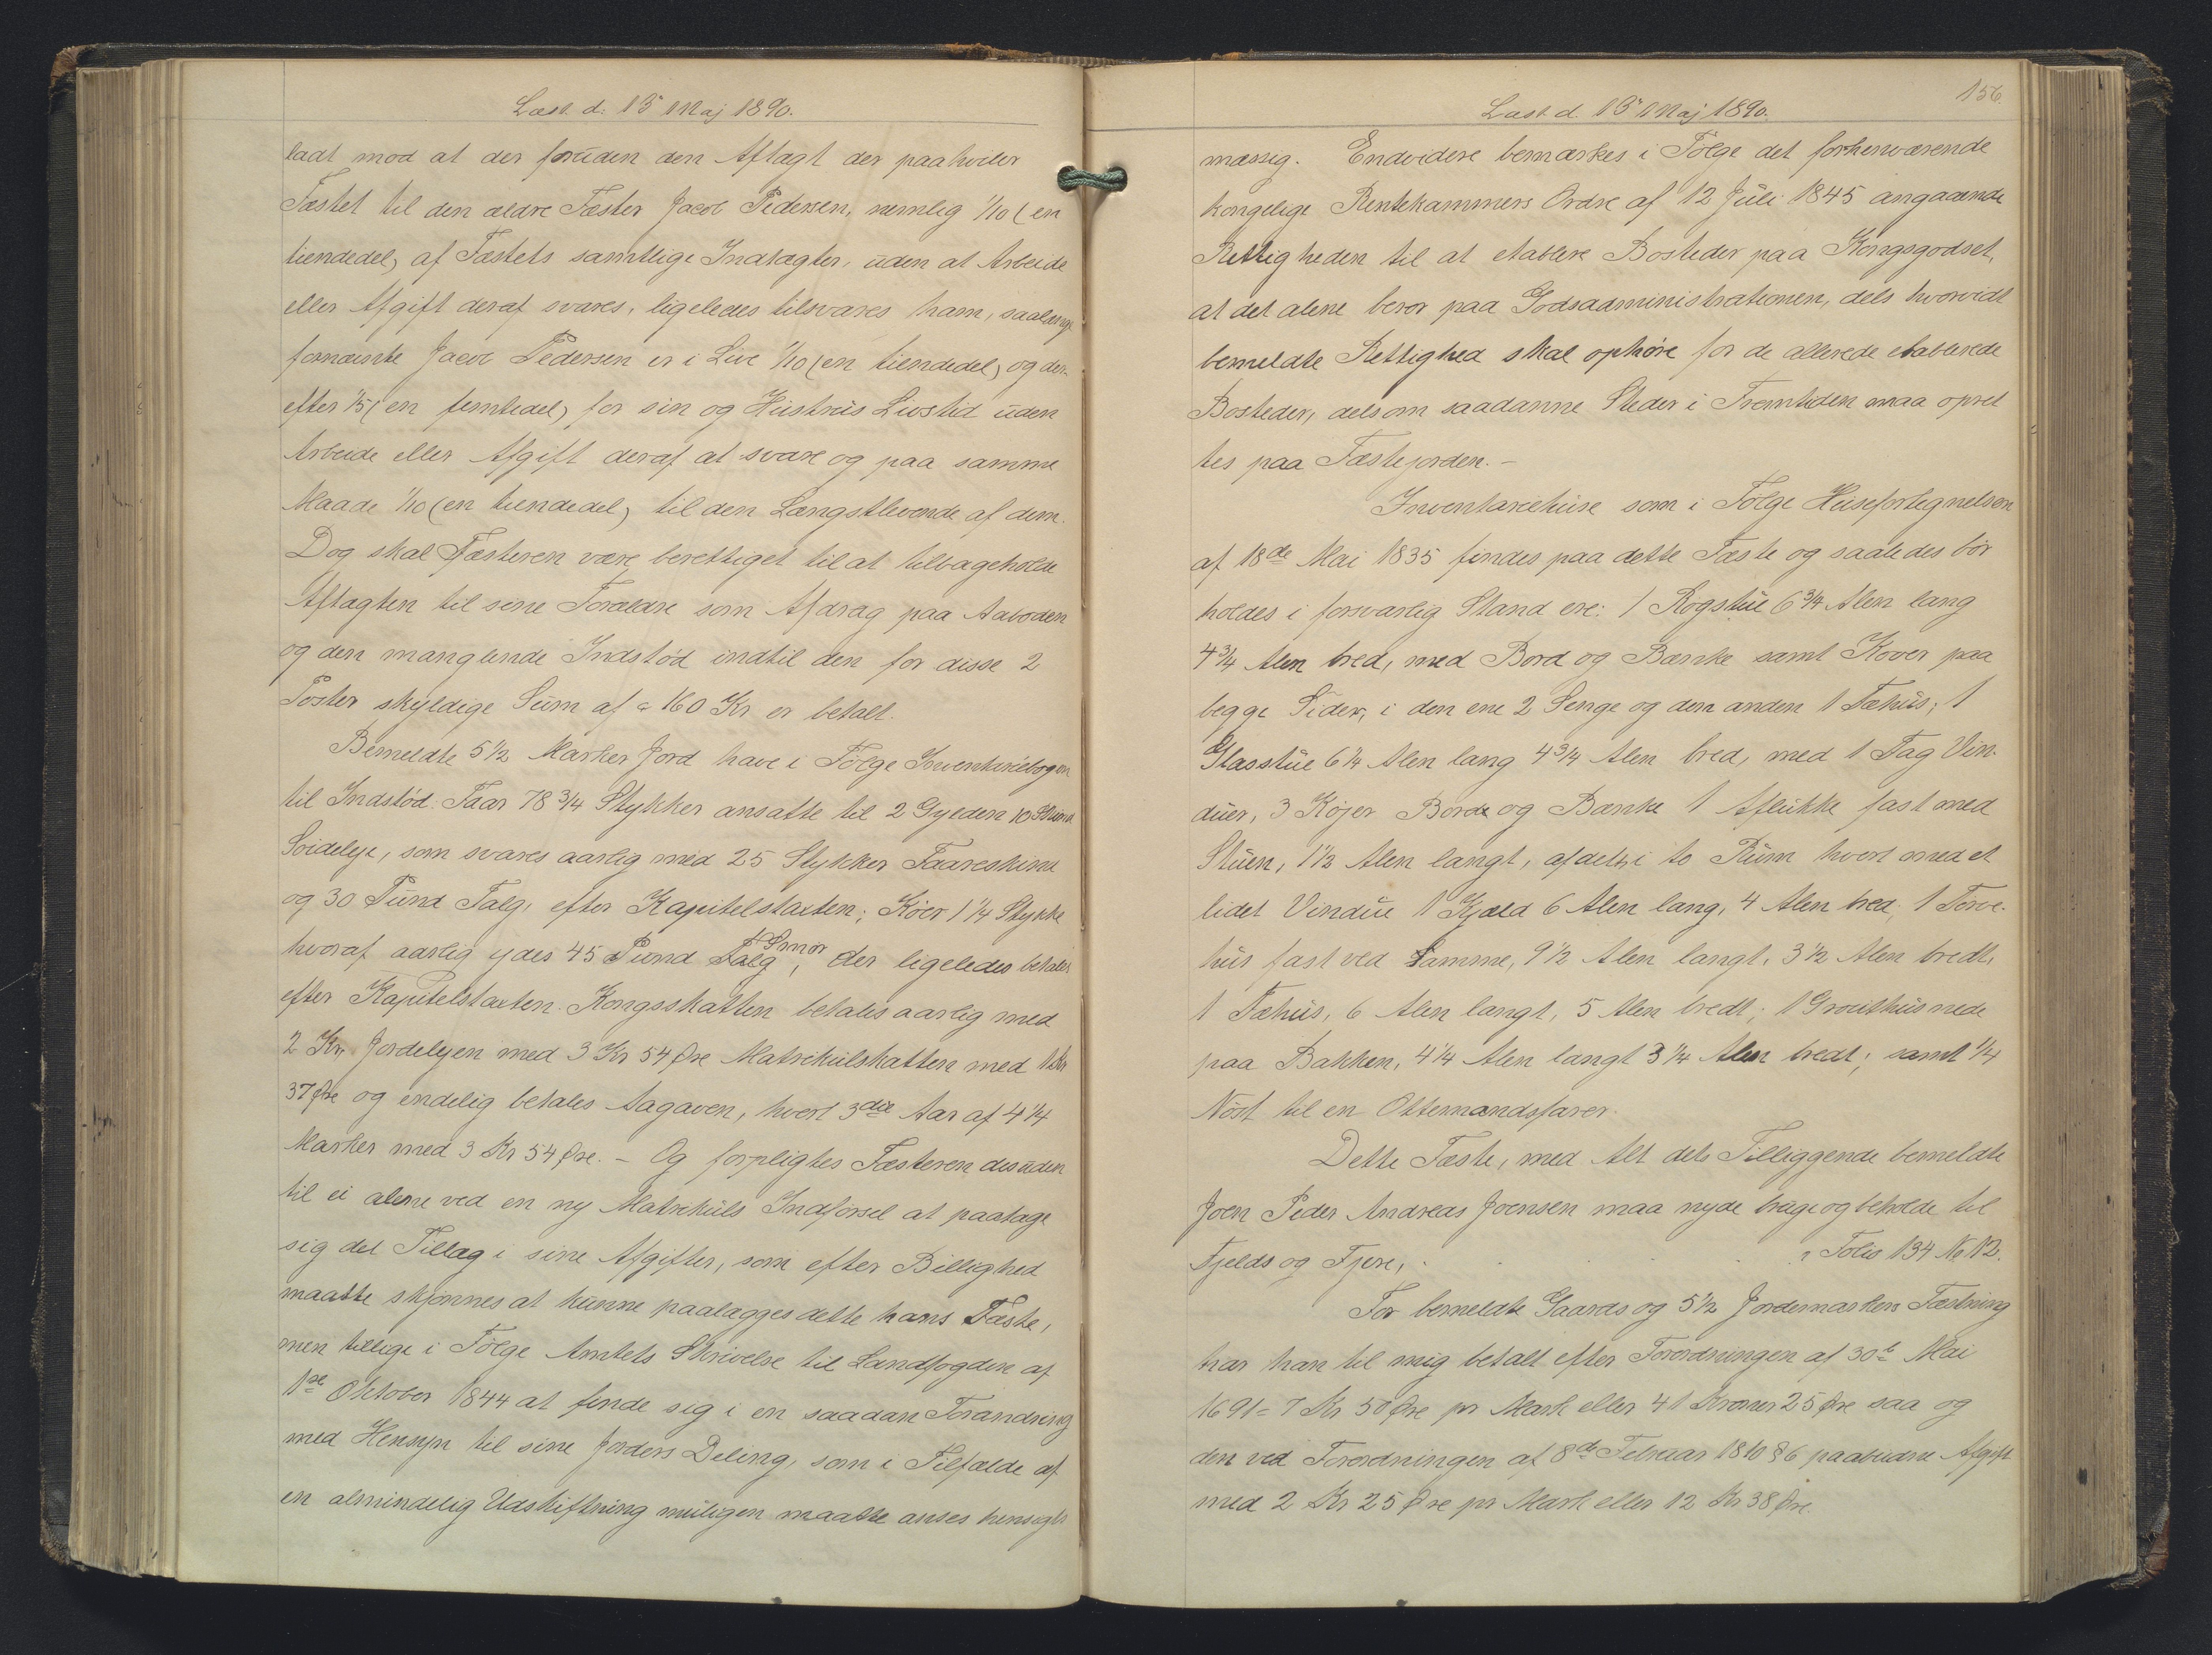 Læst d. 15 Maj 1890.
ladt mod at der foruden den Aftægt der paahviler
Fæstet til den ældre Fæster Jacob Pedersen, nemlig 1/10 (en
tiendedel) af Fæstets samtlige Indtægter, uden at Arbeide
eller Afgift deraf svares, ligeledes tilsvares ham, saalænge
fornævnte Jacob Pedersen er i Live 1/10 (en tiendedel) og der-
efter 1/5 (en femtedel) for sin og Hustrus Livstid uden
Arbeide eller Afgift deraf at svare og paa samme
Maade 1/10 (en tiendedel) til den Længstlevende af dem.
Dog skal Fæsteren være berettiget til at tilbageholde
Aftægten til sine Forældre som Afdrag paa Aaboden
og den manglende Indstød indtil den for disse 2
Poster skyldige Sum af 160 Kr er betalt.
Bemeldte 5 1/2 Marker Jord have i Følge Inventariebogen
til Indstød: Faar 78 3/4 Stykker ansatte til 2 Gylden 10 Skind
Soideleje, som svares aarlig med 25 Stykker Faareskind
og 30 Pund Talg, efter Kapitelstaxten; Køer 1 1/4 Stykke
hvoraf aarlig ydes 45 Pund Talg Smør, der ligeledes betales
efter Kapitelstaxten. Kongsskatten betales aarlig med
2 Kr, Jordelejen med 3 Kr 54 Øre Matrikulskatten med 1 Kr
37 Øre og endelig betales Aagaven, hvert 3die Aar af 4 1/4
Marker med 3 Kr 54 Øre. - Og forpligtes Fæsteren desuden
til ei alene ved en ny Matrikuls Indførsel at paatage
sig det Tillæg i sine Afgifter, som efter Billighed
maatte skjønnes at kunne paalægges dette hans Fæste,
men tillige i Følge Amtets Skrivelse til Landfogden af
1ste Oktober 1844 at finde sig i en saadan Forandring
med Hensyn til sine Jorders Deling, som i Tilfælde af
en almindelig Udskiftning muligen maatte anses hensigts
156.
Læst d. 15 Maj 1890.
mæssig. Endvidere bemærkes i Følge det forhenværende
kongelige Rentekammers Ordre af 12 Juli 1845 angaaende
Rettigheden til at etablere Bosteder paa Kongsgodset,
at det alene beror paa Godsadministrationen, dels hvorvidt
bemeldte Rettighed skal ophøre for de allerede etablerede
Bosteder, dels om saadanne Steder i Fremtiden maa opret
tes paa Fæstejorden. -
Inventariehuse som i Følge Husefortegnelsen
af 18de Mai 1835 findes paa dette Fæste og saaledes bør
holdes i forsvarlig Stand ere: 1 Røgstue 6 3/4 Alen lang
4 3/4 Alen bred, med Bord og Bænke samt Kover paa
begge Sider, i den ene 2 Senge og den anden 1 Fæhus; 1
Glasstue 6 1/4 Alen lang 4 3/4 Alen bred, med 1 Fag Vin-
duer, 3 Køjer Borde og Bænke 1 Aflukke fast med
Stuen, 1 1/2 Alen langt, afdelt i to Rum hvert med et
lidet Vindue 1 Kjæld 6 Alen lang, 4 Alen bred; 1 Torve-
hus fast ved Samme, 9 1/2 Alen langt, 3 1/2 Alen bredt,
1 Fæhus, 6 Alen langt, 5 Alen bredt; 1 Grouthus nede
paa Bakken, 4 1/4 Alen langt 3 1/4 Alen bredt; samt 1/4
Nøst til en Ottemandsfarer.
Dette Fæste, med Alt dets Tilliggende bemeldte
Joen Peder Andreas Joensen maa nyde bruge og beholde til
Fjelds og Fjere, . . . Folio 134 No 12.
For bemeldte Gaards og 5 1/2 Jordemarkers Fæstning
har han til mig betalt efter Forordningen af 30te Mai
1691 = 7 Kr 50 Øre pr Mark eller 41 Kroner 25 Øre saa og
den ved Forordningen af 8de Februar 1810 § 6 paabudne Afgift
med 2 Kr 25 Øre pr Mark eller 12 Kr 38 Øre.